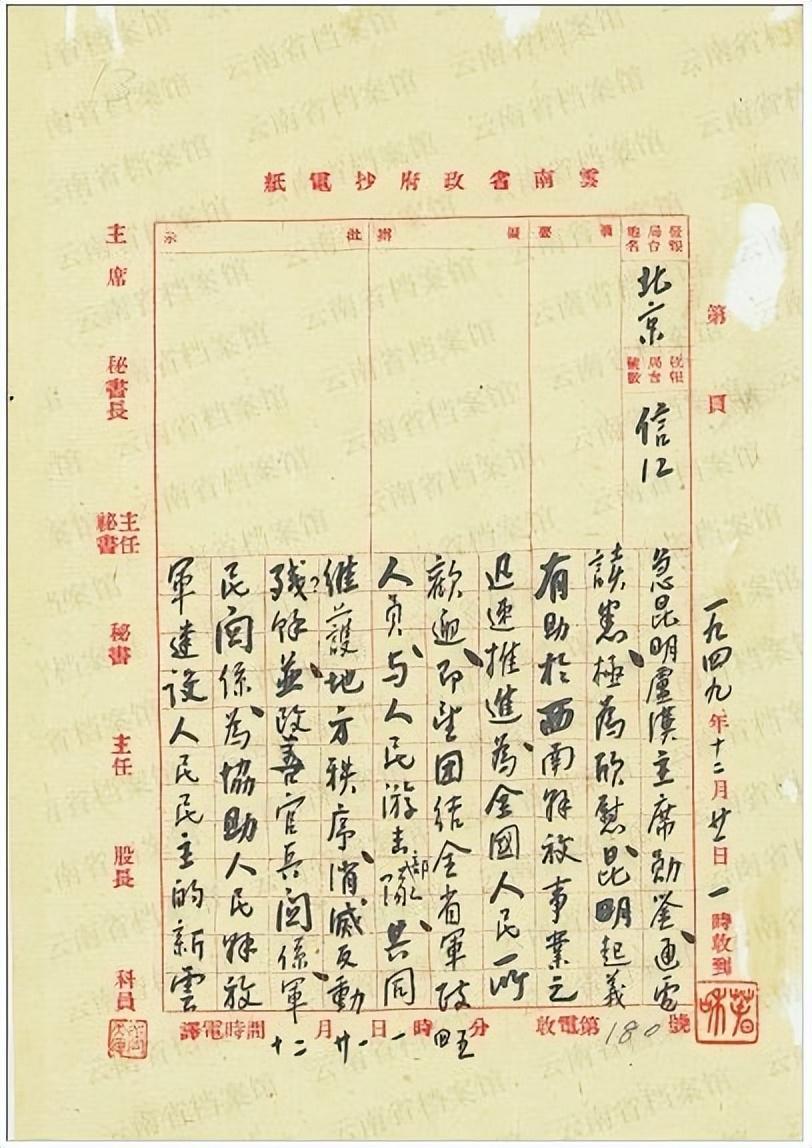 雲南省政府抄電紙
第 頁
一九四九年十二月廿一日一時收到
發報局台地名
北京
收報局台號數
信江
職銜
擬辦
批示
急昆明盧漢主席勛鉴通電
讀悉極為欣慰昆明起義
有助於西南解放事業之
迅速推進為全國人民所
歡迎即望团结全省軍政
人員与人民游击部隊共同
維護地方秩序消滅反動
残餘並改善官兵関係軍
民関係為協助人民解放
軍建設人民民主的新雲
收電第180號
譯電時間十二月廿一日一時 分
主席 秘書長 主任秘書 秘書 主任 股長 科員
云南省档案馆